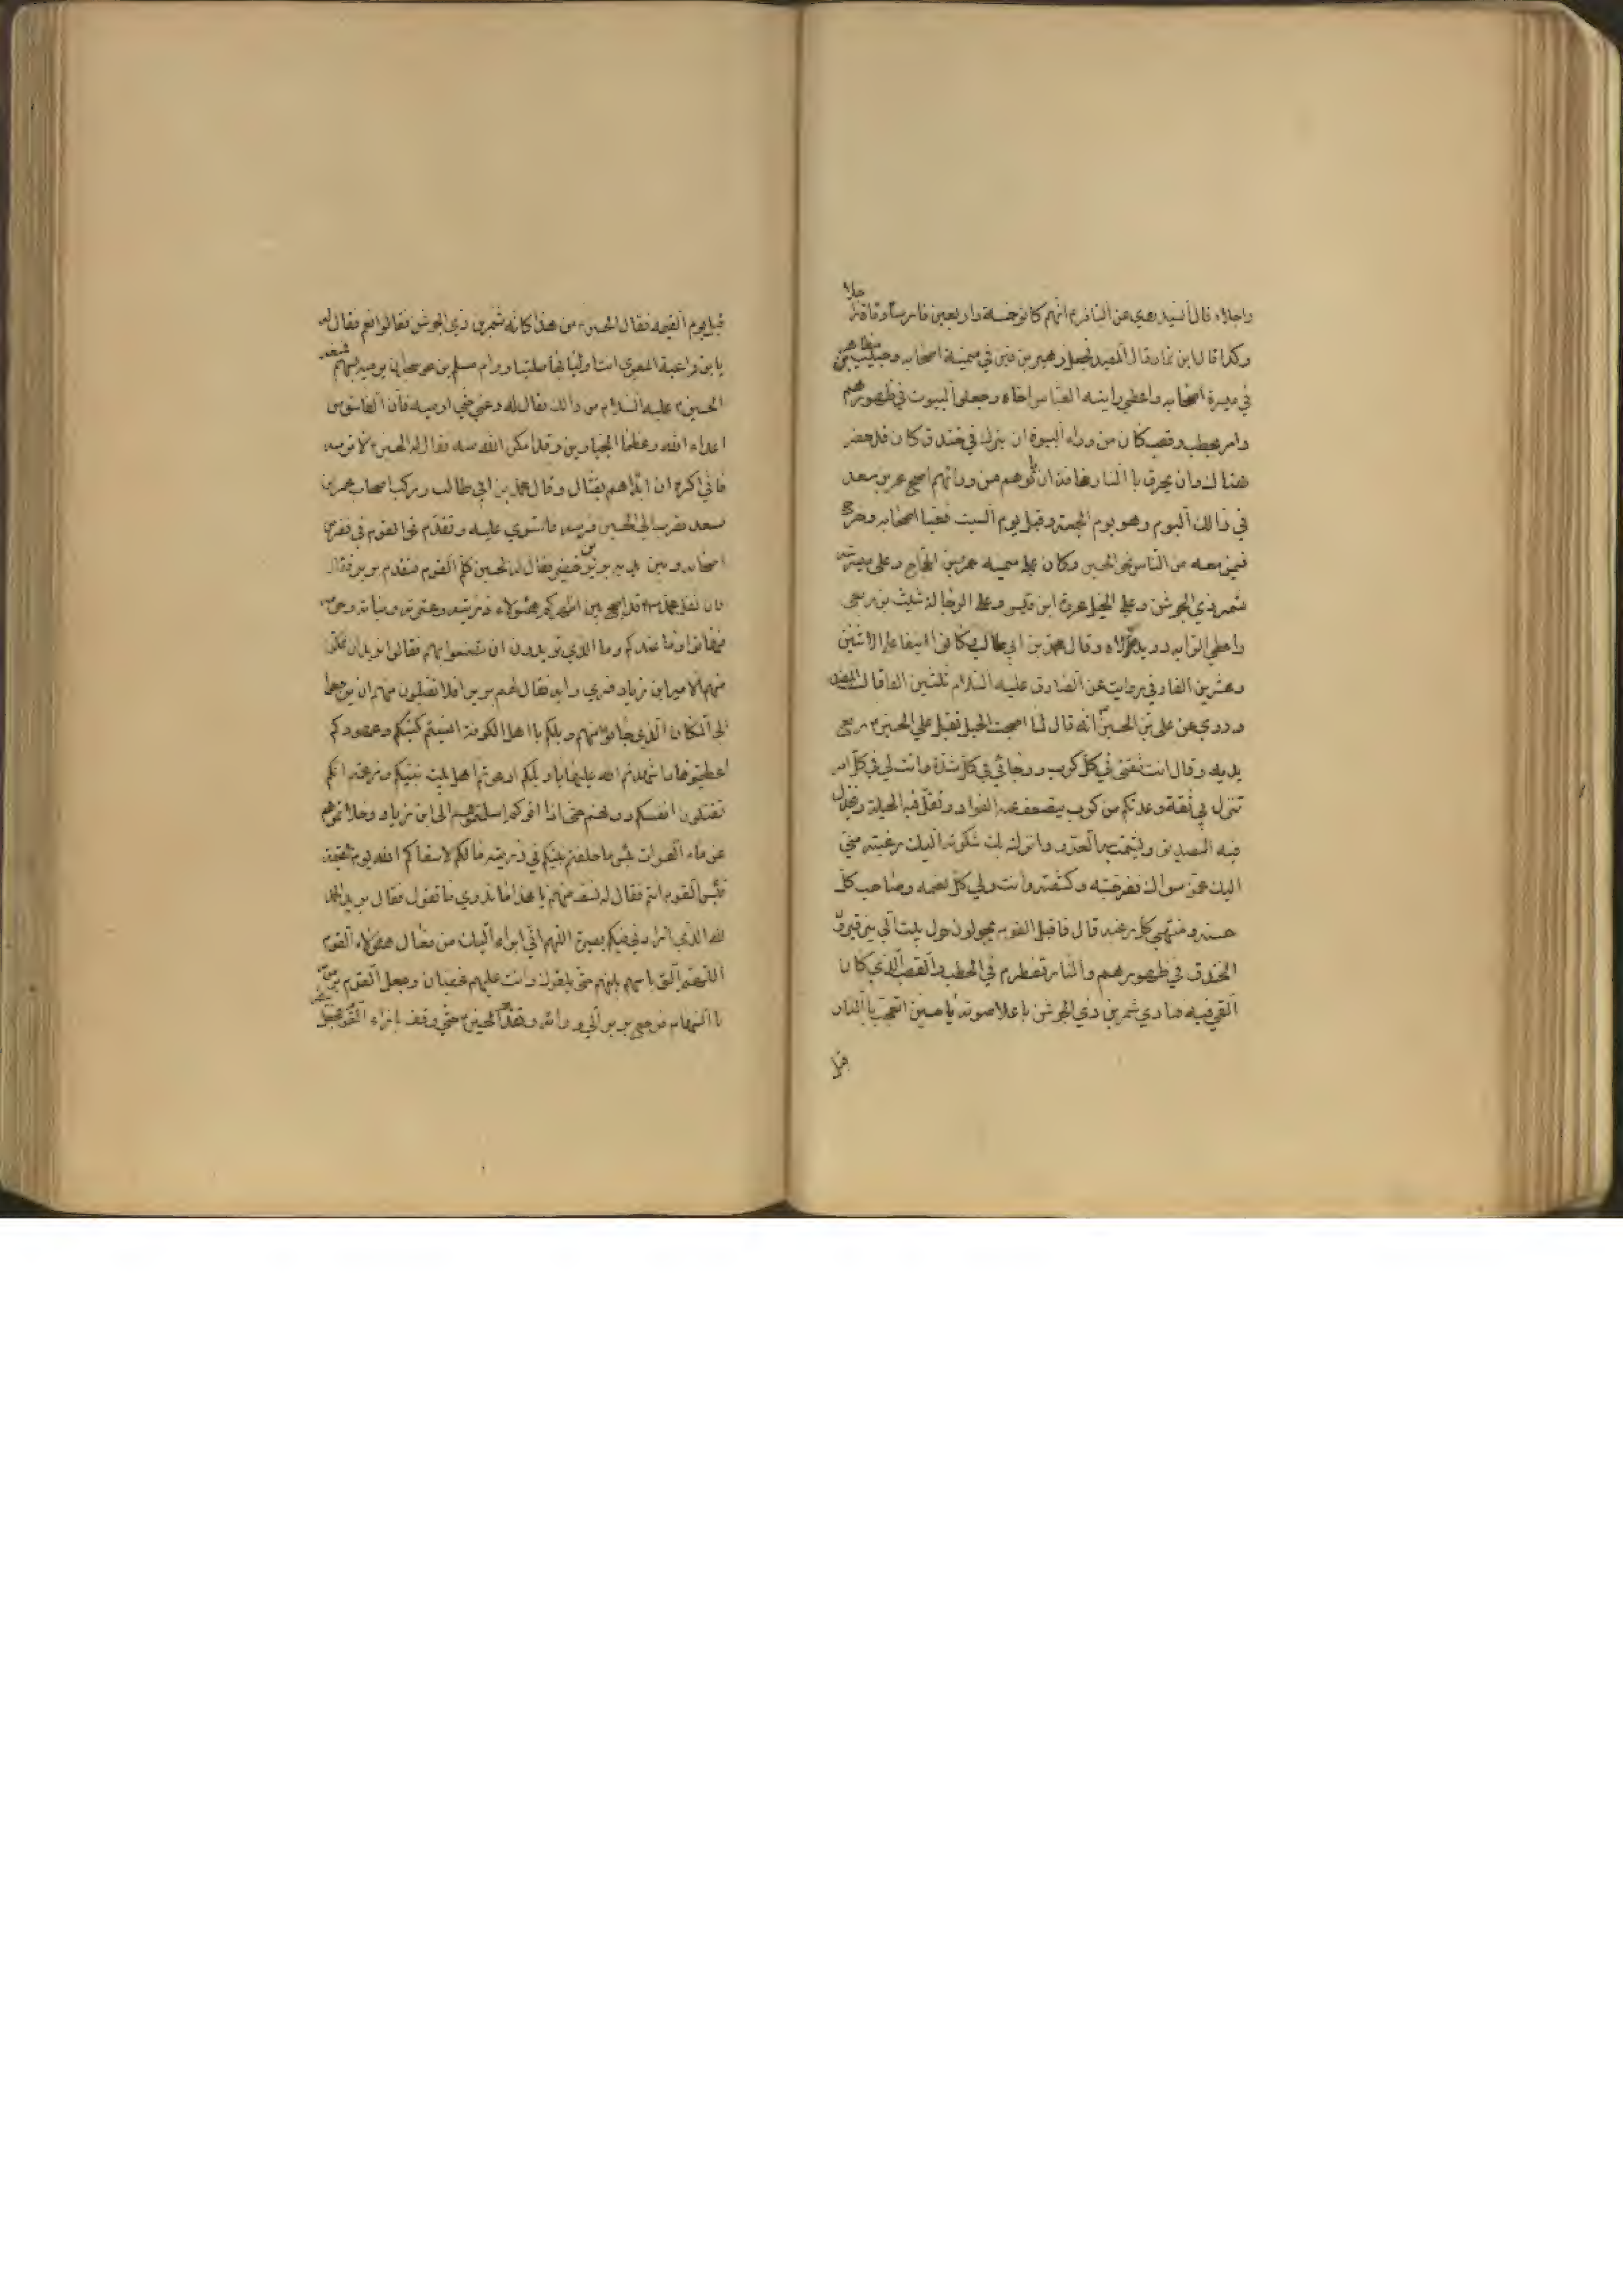 واجلاء قال السيد روي عن الباقر ع انهم كانو خمسة واربعين فارسا وماة راجلا
وكذا قال ابن نما وقال المفيد فجعل زهير بن قين في ميمنة اصحابه وحبيب بن مظاهر
في ميسرة اصحابه واعطي رايته العباس اخاه وجعلو البيوت في ظهورهم
وامر بحطب وقصب كان من وراء البيوة ان يترك في خندق كان قد حفر
هناك وان يحرق باالنار مخافة ان ياتوهم من ورائهم اصبح عمر بن سعد
في ذالك اليوم وهو يوم الجمعة وقيل يوم السبت فعبا اصحابه وخرج
فيمن معه من الناس نحو الحسين وكان علي ميمنه عمر بن الحجاج وعلي ميسرته
شمر ذي الجوشن وعلي الخيل عروة ابن قيس وعلي الرجالة شبث بن ربعي
واعطي الرايه دريد مولاه وقال محمد بن ابي طالب كانوا نيفا علي الاثنين
وعشرين الفا وفي رواية عن الصادق عليه السلام ثلثين الفا قال المفيد
وروي عن علي بن الحسين انه قال لما اصبحت الخيل تقبل علي الحسين ع رفع
يديه وقال انت ثقتي في كل كرب ورجائي في كل شدة وانت لي في كل امر
تنزل بي ثقة وعدة كم من كرب يضعف عنه الفواد وتقل فيه الحيلة ويخذل
فيه الصديق ويشمت به العدو وانزلته بك شكوته اليك رغبته مني
اليك عمن سواك ففرجته وكشفته وانت ولي كل نعمه وصاحب كل
حسنه ومنتهي كل رغبه قال فاقبل القوم يجولون حول بيت الي فيرون
الخندق في ظهورهم والنار تضطرم في الحطب والقصب الذي كان
القي فيه فنادي شمر بن ذي الجوشن باعلا صوته يا حسين اتعجب باالنار
قبل
قبل يوم القيمه فقال الحسين ع من هذا كانه شمر بن ذي الجوشن فقالوا نعم فقال له
يابن راعية المعزي انت اولي بها صليا ورام مسلم بن عوسجة ان يرميه بسهم فمنعه
الحسين ع عليه السلام من ذالك فقال له دعني حتي ارميه فان الفاسق من
اعداء الله وعظماء الجبارين وقد امكن الله منه فقال له الحسين ع لا ترمه
فاني اكره ان ابداهم بقتال وقال محمد بن ابي طالب وركب اصحاب عمر بن
سعد فقرب الي الحسين فرسه فاستوي عليه وتقدم نحوا لقوم في نفر من
اصحابه وبين يديه برير بن خضير فقال له الحسين كلم القوم فتقدم برير فقال
فان ثقل محمد قد اصبح بين اظهركم هؤلاء ذريته وعترته وبناته وحرمه
فهاتوا ما عندكم وما الذي تريدون ان تصنعوا بهم فقالوا نريد ان نمكن
منهم الامير ابن زياد فيري رايه فقال لهم برير افلا تقبلون منهم ان يرجعوا
الي المكان الذي جاوا منهم ويلكم يا اهل الكوفة انسيتم كتبكم وعهودكم
اعطيتموها واشهدتم الله عليها يا ويلكم ادعوتم اهل بيت نبيكم وزعمتم انكم
تقتلون انفسكم دونهم حتي اذا اتوكم اسلمتموهم الي ابن زياد وحلاتموهم
عن ماء الفرات بئس ما خلفتم نبيكم في ذريته مالكم لا سقاكم الله يوم القيمة
فبئس القوم انتم فقال له نفر منهم يا هذا ما ندري ما تقول فقال برير الحمد
لله الذي زادني فيكم بصيرة اللهم اني ابراء اليك من فعال هؤلاء القوم
اللهم الق باسهم بينهم حتي يلقوك وانت عليهم غضبان وجعل القوم يرمونه
باالسهام فرجع برير الي ورائه وتقدم الحسين ع حتي وقف بازاء القوم فجعل